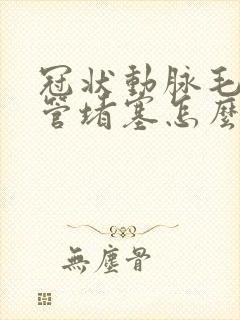 冠状動脉毛
管堵塞怎麼
無塵骨